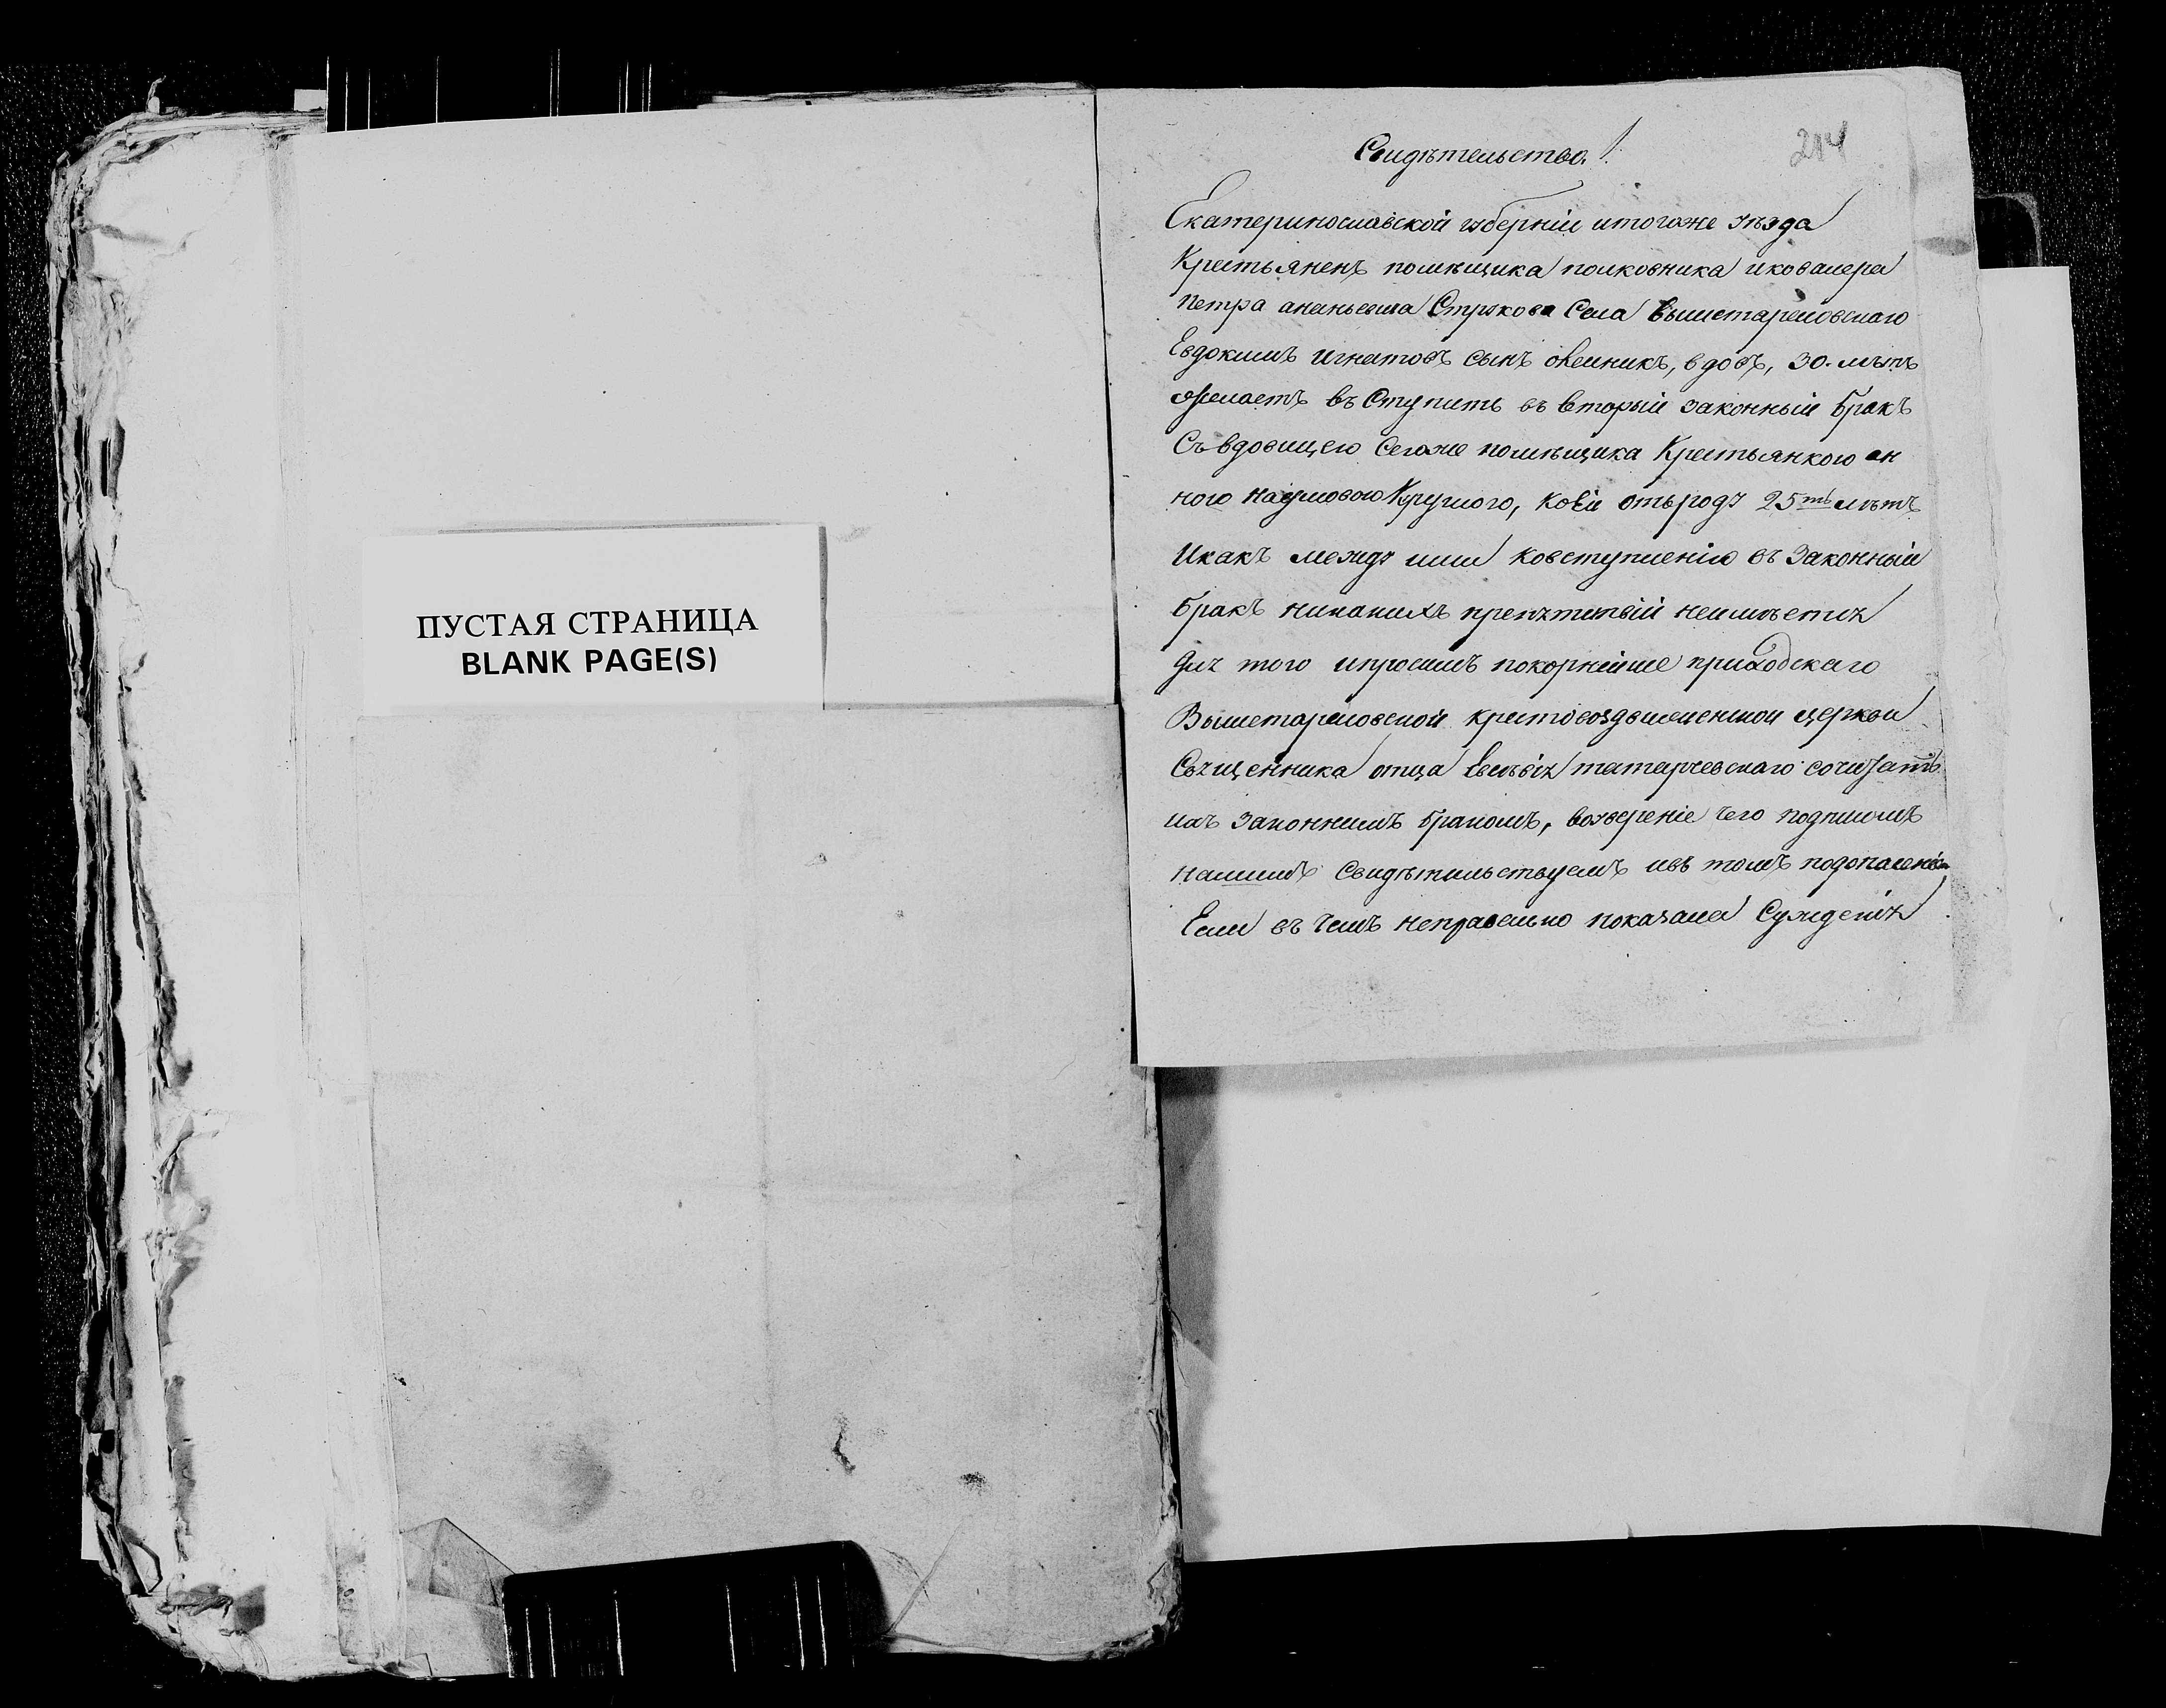 ПУСТАЯ СТРАНИЦА
BLANK PAGE(S)
214
Свидѣтельство
Екатеринославской губерніи итогоже уѣзда
Крестьяненъ помѣщика полковника иковалера
Петра ананьевича Струкова Села Вышетарамовскаго
Евдокимъ Игнатовъ сынъ олейникъ, вдовъ, 30. лѣтъ
желаетъ въ Ступить въ вторый законный бракъ
Съ вдовицею Сегоже помѣщика Крестьянкою ан
ною Наумовою Круглою, коей отъроду 25ть лѣтъ
Икакъ между ими ковступленію въ Законный
бракъ никакихъ препятствій неимѣется
для того ипросимъ покорнейше приходскаго
Вышетарамовской крестовоздвиженской церкви
Священника отца татарчевскаго сочитать
ихъ законнимъ бракомъ, воувереніе чего подписомъ
нашимъ Свидѣтельствуемъ ивъ томъ подопасеніем
Если въ чемъ неправельно показали Сужденія